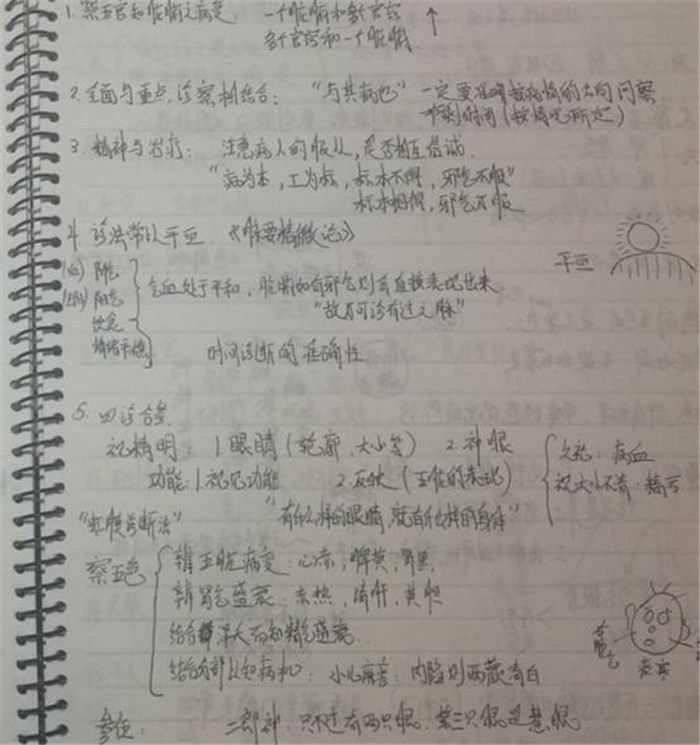 1. 察五官知脏腑之病变. 一个脏腑和多个官窍 ↑
多个官窍和一个脏腑.
2. 全面与重点诊察相结合: "与其病也" 一定要准确按病情的去向问察.
时间(按情况所定)
3. 精神与治疗: 注意病人的服从, 是否相互信诚.
"病为本, 工为标, 标本不得, 邪气不服"
标本相得, 邪气乃服
4. 诊法常以平旦.《脉要精微论》
平旦
阴气
阳气
饮食
情绪平稳
气血处于平和, 脏腑如有邪气则会直接表现出来.
"故乃可诊有过之脉"
时间诊断的准确性
5. 四诊合参
视精明: 1. 眼睛(轮廓、大小等) 2. 神眼
功能: 1. 视见功能 2. 反映(五脏的表现)
"有什么样的眼睛, 就有什么样的身体"
视大小不齐: 精亏
"虹膜诊断法"
察五色
辨五脏病变: 心赤, 脾黄, 肾黑
辨胃气盛衰
结合部以知病机: 小儿麻疹: 内陷则两颧青白
参伍: 二郎神: 只不过有两只眼. 第三只眼是慧眼